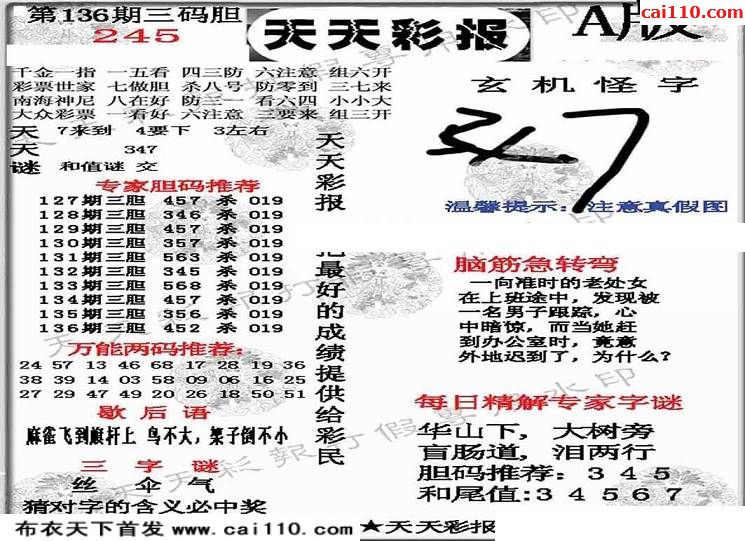 第136期三码胆
245
天天彩报
A版
cai110.com
千金一指 一五看 四三防 六注意 组六开
彩票世家 七做胆 杀八号 防零到 三七来
南海神尼 八在好 防三一 看六四 小小大
大众彩票 一看好 六注意 三要来 组三开
天 7来到 4要下 3左右
天 347
谜 和值谜 交
专家胆码推荐
127期三胆 457 杀 019
128期三胆 346 杀 019
129期三胆 451 杀 019
130期三胆 357 杀 019
131期三胆 563 杀 019
132期三胆 345 杀 019
133期三胆 568 杀 019
134期三胆 457 杀 019
135期三胆 356 杀 019
136期三胆 452 杀 019
万能两码推荐:
24 57 13 46 68 17 28 19 36
38 39 14 03 58 09 06 16 25
27 29 47 49 20 26 18 50 51
歇后语
麻雀飞到旗杆上 鸟不大,架子倒不小
三字谜
丝 伞 气
猜对字的含义必中奖
天天彩报
把最好的成绩提供给彩民
玄机怪字
347
温馨提示:注意真假图
脑筋急转弯
一向准时的老处女
在上班途中,发现被
一名男子跟踪,心
中暗惊,而当她赶
到办公室时,竟意
外地迟到了,为什么?
每日精解专家字谜
华山下,大树旁
盲肠道,泪两行
胆码推荐:3 4 5
和尾值:3 4 5 6 7
布衣天下首发 www.cai110.com
★天天彩报